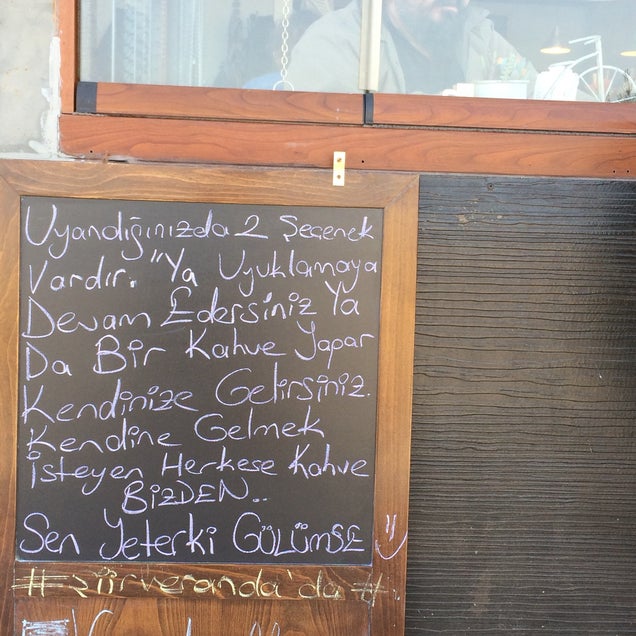 Uyandığınızda 2 Seçenek
Vardır. "Ya Uyuklamaya
Devam Edersiniz Ya
Da Bir Kahve Yapar
Kendinize Gelirsiniz.
Kendine Gelmek
İsteyen Herkese Kahve
BİZDEN..
Sen Yeterki GÜLÜMSE :)
#şiirveranda'da#